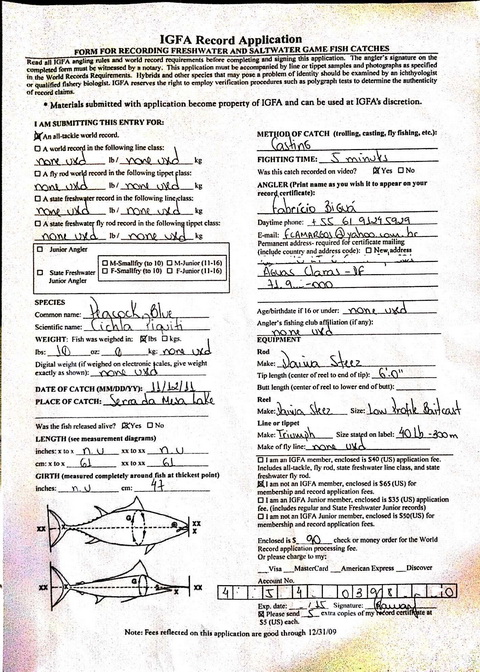 IGFA Record Application
FORM FOR RECORDING FRESHWATER AND SALTWATER GAME FISH CATCHES
Read all IGFA angling rules and world record requirements before completing and signing this application. The angler's signature on the
completed form must be witnessed by a notary. This application must be accompanied by line or tippet samples and photographs as specified
in the World Records Requirements. Hybrids and other species that may pose a problem of identity should be examined by an ichthyologist
or qualified fishery biologist. IGFA reserves the right to employ verification procedures such as polygraph tests to determine the authenticity
of record claims.
* Materials submitted with application become property of IGFA and can be used at IGFA's discretion.
I AM SUBMITTING THIS ENTRY FOR:
An all-tackle world record.
A world record in the following line class:
none used lb / none used kg
A fly rod world record in the following tippet class:
none used lb / none used kg
A state freshwater record in the following line class:
none used lb / none used kg
A state freshwater fly rod record in the following tippet class:
none used lb / none used kg
Junior Angler
State Freshwater
Junior Angler
M-Smallfry (to 10) M-Junior (11-16)
F-Smallfry (to 10) F-Junior (11-16)
SPECIES
Common name: Peacock, Blue
Scientific name: Cichla piquiti
WEIGHT: Fish was weighed in: lbs kgs.
lbs: 10 oz: 0 kg: none used
Digital weight (if weighed on electronic scales, give weight
exactly as shown): none used
DATE OF CATCH (MM/DD/YY): 11/12/11
PLACE OF CATCH: Serra da Mesa Lake
Was the fish released alive? Yes No
LENGTH (see measurement diagrams)
inches: x to x n.u xx to xx n.u
cm: x to x 61 xx to xx 61
GIRTH (measured completely around fish at thickest point)
inches: n.u cm: 47
XX X G X XX
XX X G X XX
METHOD OF CATCH (trolling, casting, fly fishing, etc.):
Casting
FIGHTING TIME: 5 minuts
Was this catch recorded on video? Yes No
ANGLER (Print name as you wish it to appear on your
record certificate):
Fabrício Biguá
Daytime phone: +55 61
E-mail: @yahoo.com.br
Permanent address- required for certificate mailing
(include country and address code): New address
Águas Claras - DF
71.9 -000
Age/birthdate if 16 or under: none used
Angler's fishing club affiliation (if any):
none used
EQUIPMENT
Rod
Make: Daiwa Steez
Tip length (center of reel to end of tip): 6'0"
Butt length (center of reel to lower end of butt):
Reel
Make: Daiwa Steez Size: Low Profile Baitcast
Line or tippet
Make: Triumph Size stated on label: 40 lb - 300m
Make of fly line: none used
I am an IGFA member, enclosed is $40 (US) application fee.
Includes all-tackle, fly rod, state freshwater line class, and state
freshwater fly rod.
I am not an IGFA member, enclosed is $65 (US) for
membership and record application fees.
I am an IGFA Junior member, enclosed is $35 (US) application
fee. (includes regular and State Freshwater Junior records)
I am not an IGFA Junior member, enclosed is $50(US) for
membership and record application fees.
Enclosed is $ 90 check or money order for the World
Record application processing fee.
Or please charge to my:
Visa MasterCard American Express Discover
Account No.
Exp. date: Signature:
Please send 5 extra copies of my record certificate at
$5 (US) each.
Note: Fees reflected on this application are good through 12/31/09